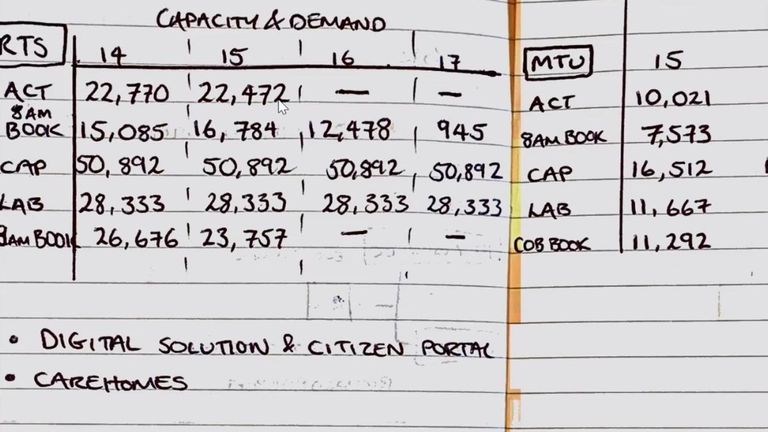 CAPACITY & DEMAND
RTS 14 15 16 17
ACT 22,770 22,472 — —
8AM BOOK 15,085 16,784 12,478 945
CAP 50,892 50,892 50,892 50,892
LAB 28,333 28,333 28,333 28,333
8AM BOOK 26,676 23,757 — —
• DIGITAL SOLUTION & CITIZEN PORTAL
• CAREHOMES
MTU 15
ACT 10,021
8AM BOOK 7,573
CAP 16,512
LAB 11,667
COB BOOK 11,292